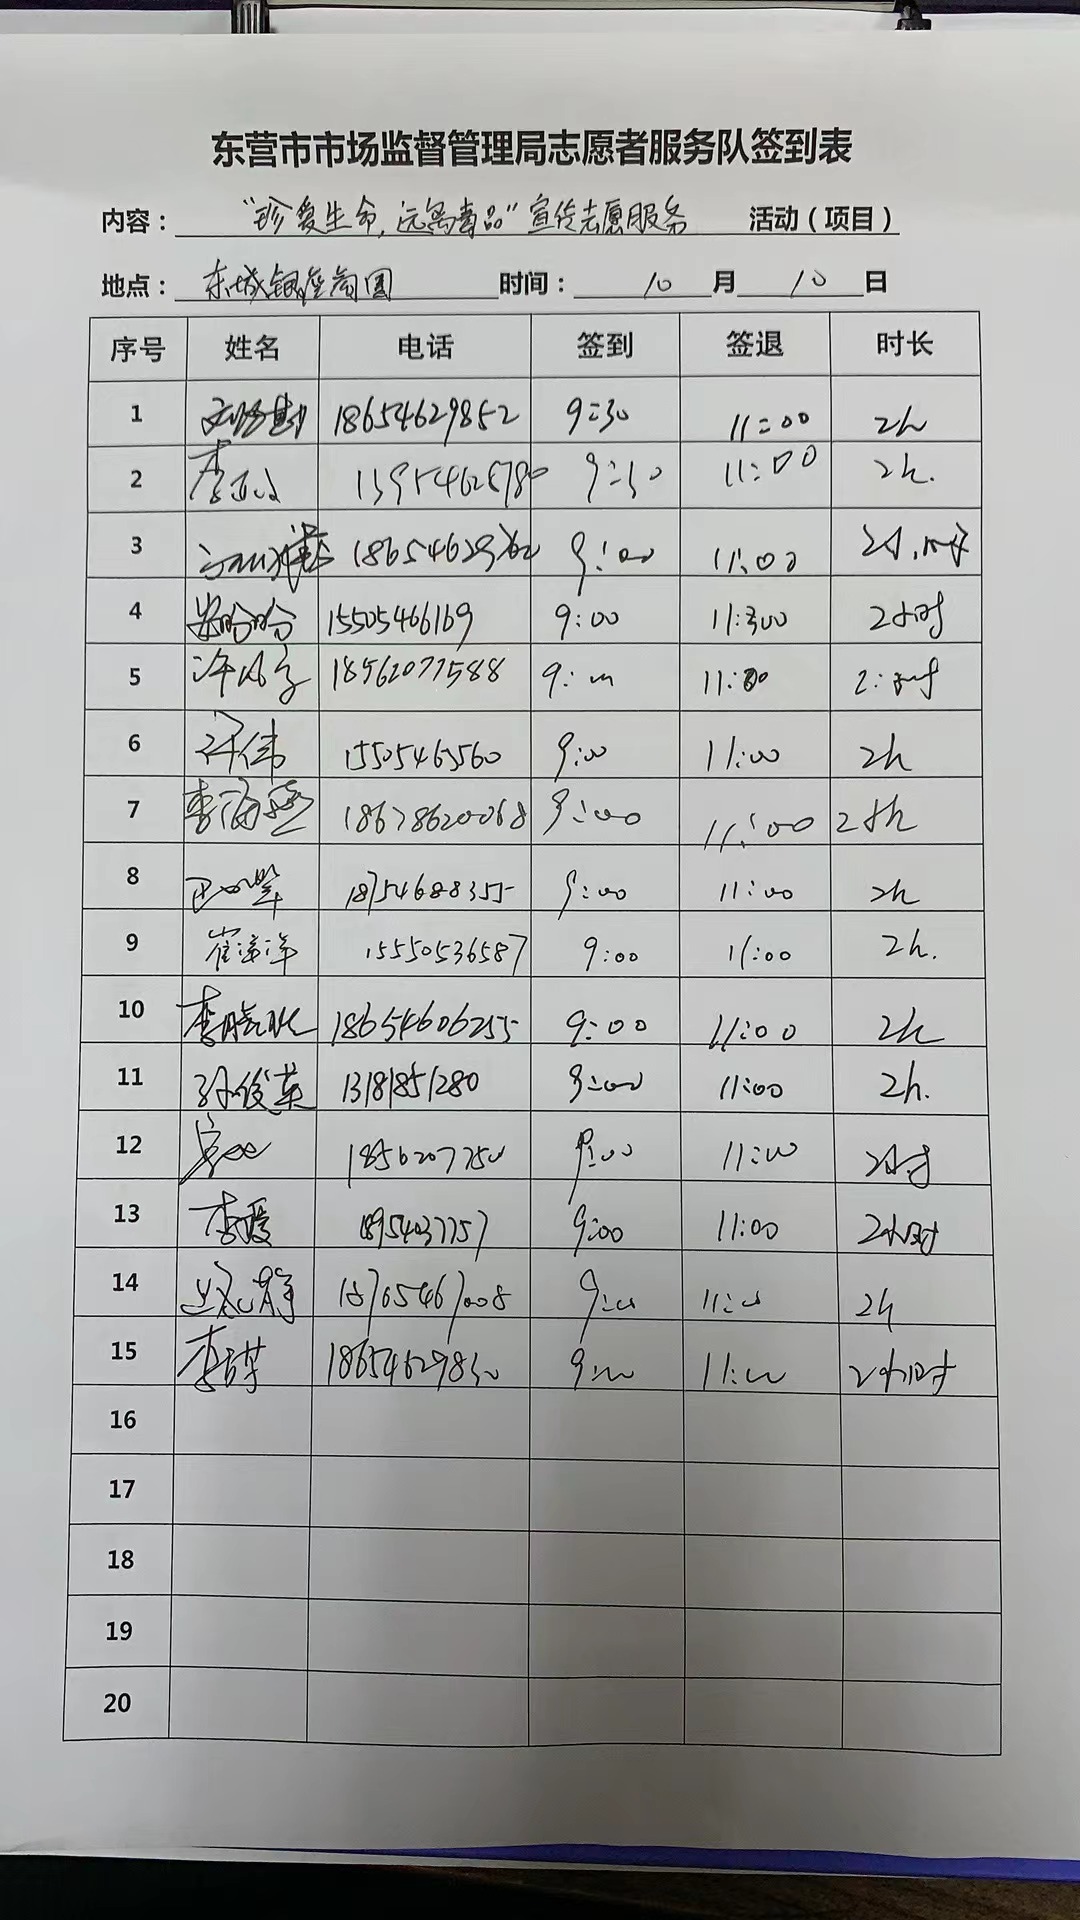 东营市市场监督管理局志愿者服务队签到表
内容： “珍爱生命，远离毒品”宣传志愿服务 活动（项目）
地点： 东城银座商圈 时间： 10 月 10 日
序号 姓名 电话 签到 签退 时长
1 18654629852 9:30 11:00 2h
2 9:30 11:00 2h.
3 9:00 11:00
4 15505466169 9:00 11:00 2小时
5 18562077588 11:00
6 许伟 9:00 11:00 2h
7 18678620068 9:00 11:00
8 18754688355 9:00 11:00 2h
9 崔洋洋 15550536587 9:00 11:00 2h.
10 18654606255 9:00 11:00 2h
11 孙俊英 13181851280 9:00 11:00 2h.
12 9:00 11:00 2小时
13 李霞 18954037757 9:00 11:00 2小时
14 18705467008 9:00 11:00 2h
15 18654629830 9:00 11:00 2小时
16
17
18
19
20